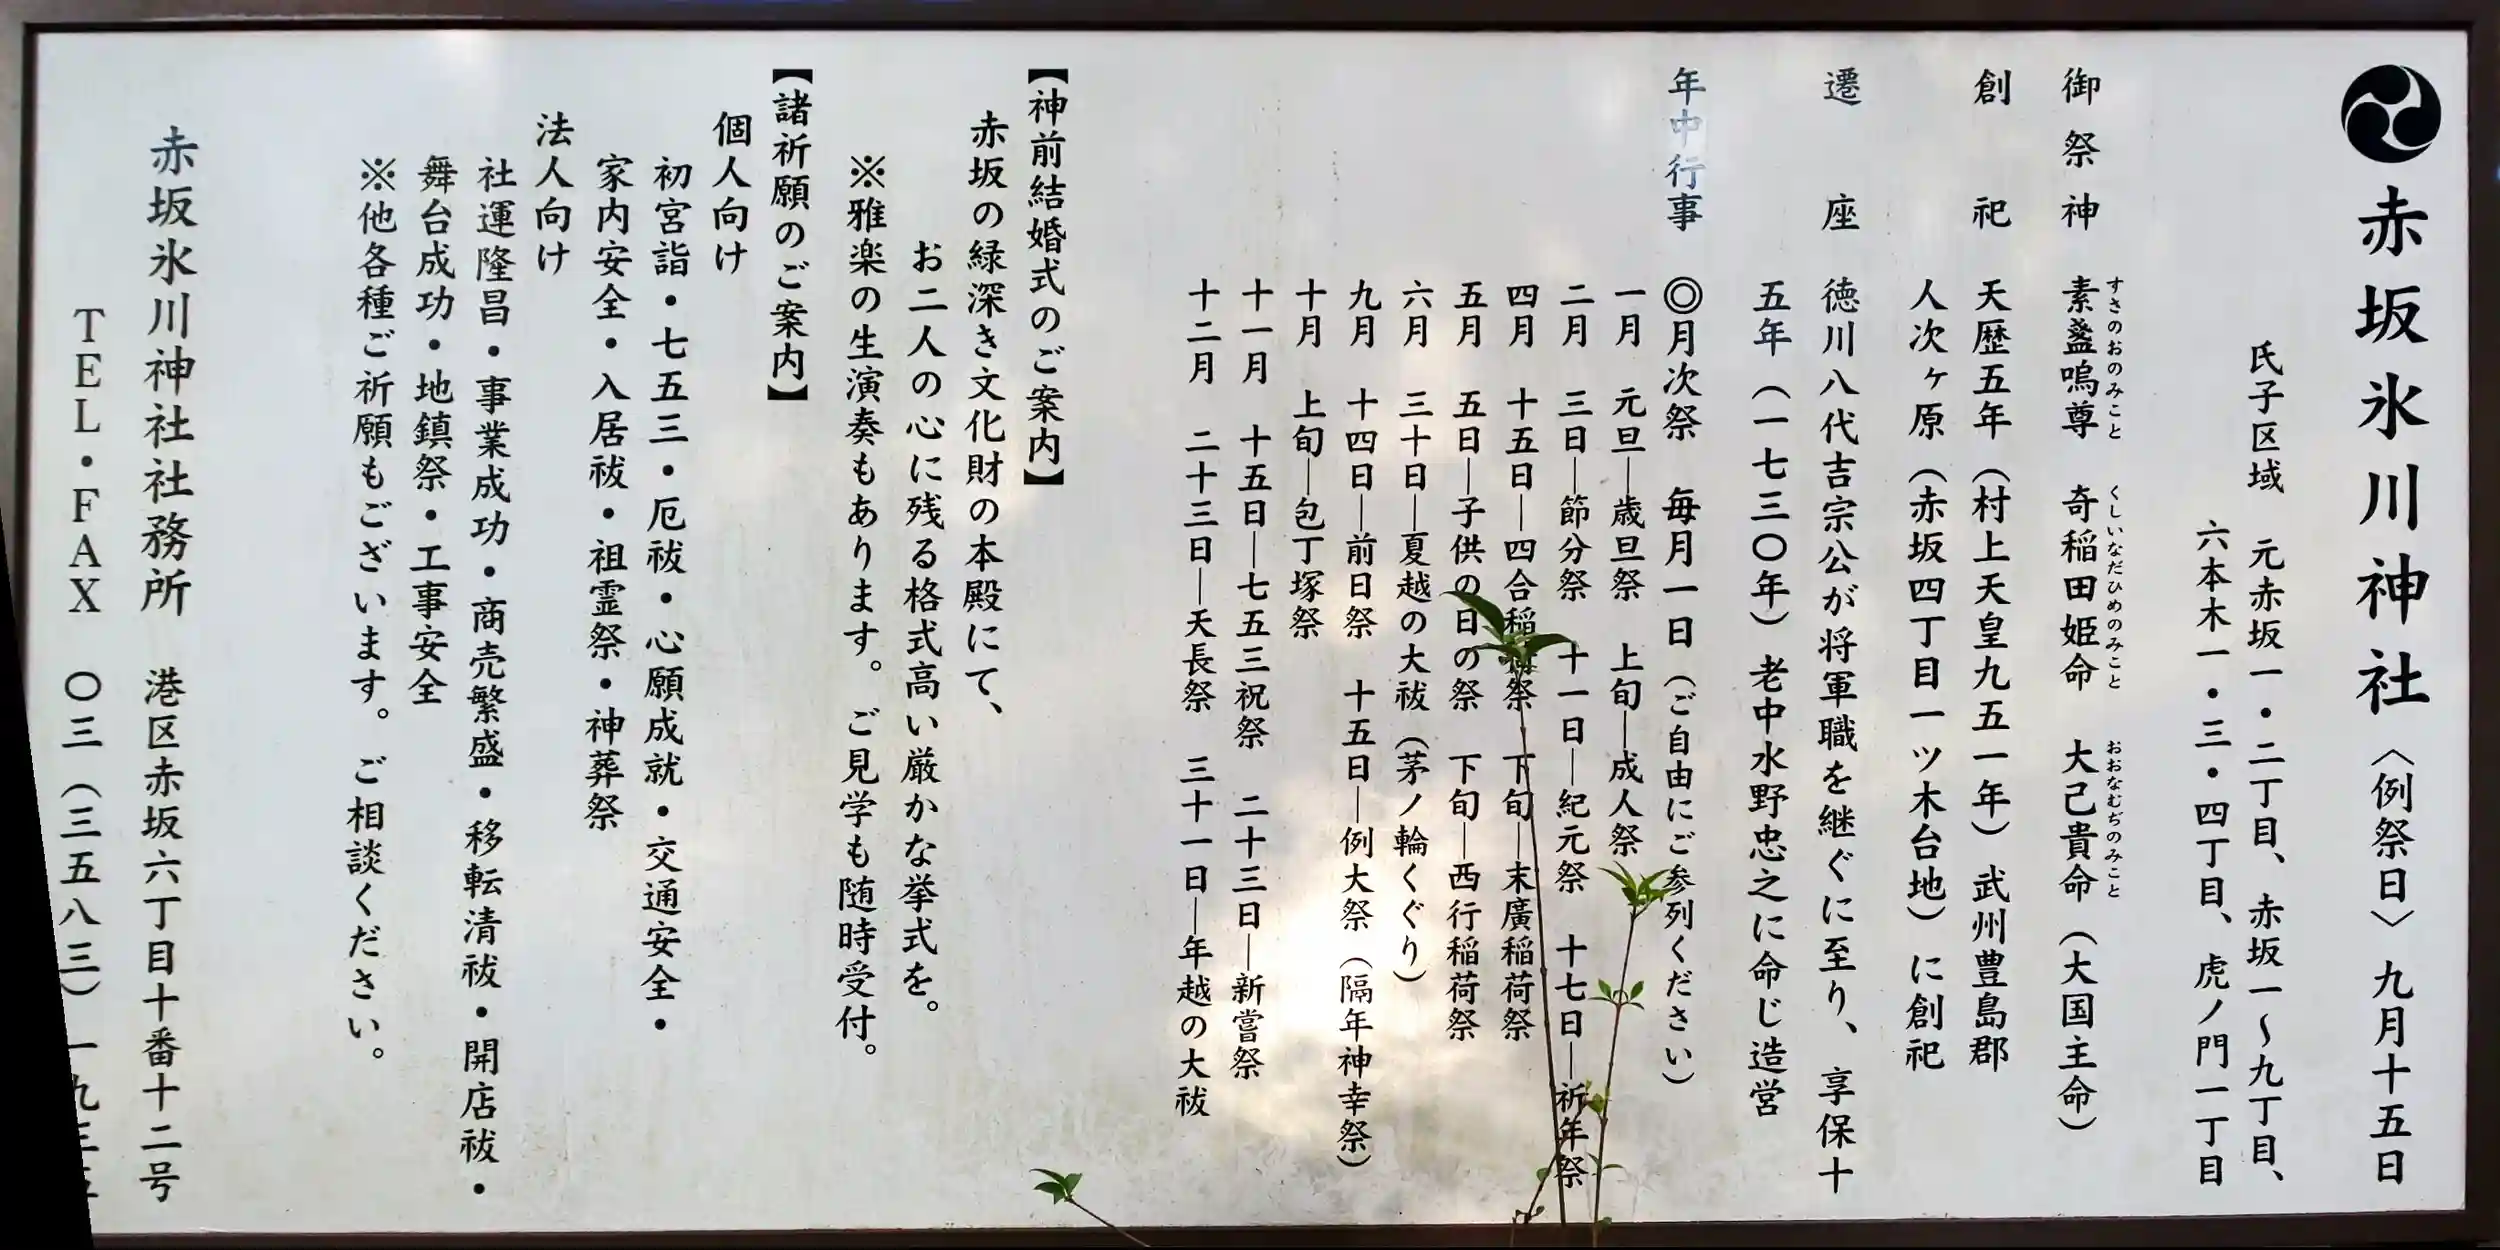 赤坂氷川神社〈例祭日〉九月十五日
氏子区域 元赤坂一・二丁目、赤坂一〜九丁目、
六本木一・三・四丁目、虎ノ門一丁目
御祭神 素盞嗚尊 奇稲田姫命 大己貴命（大国主命）
すさのおのみこと くしいなだひめのみこと おおなむぢのみこと
創祀 天歴五年（村上天皇九五一年）武州豊島郡
人次ヶ原（赤坂四丁目一ツ木台地）に創祀
遷座 徳川八代吉宗公が将軍職を継ぐに至り、享保十
五年（一七三〇年）老中水野忠之に命じ造営
年中行事 ◎月次祭 毎月一日（ご自由にご参列ください）
一月 元旦―歳旦祭 上旬―成人祭
二月 三日―節分祭 十一日―紀元祭 十七日―祈年祭
四月 十五日―四合稲荷祭 下旬―末廣稲荷祭
五月 五日―子供の日の祭 下旬―西行稲荷祭
六月 三十日―夏越の大祓（茅ノ輪くぐり）
九月 十四日―前日祭 十五日―例大祭（隔年神幸祭）
十月 上旬―包丁塚祭
十一月 十五日―七五三祝祭 二十三日―新嘗祭
十二月 二十三日―天長祭 三十一日―年越の大祓
【神前結婚式のご案内】
赤坂の緑深き文化財の本殿にて、
お二人の心に残る格式高い厳かな挙式を。
※雅楽の生演奏もあります。ご見学も随時受付。
【諸祈願のご案内】
個人向け
初宮詣・七五三・厄祓・心願成就・交通安全・
家内安全・入居祓・祖霊祭・神葬祭
法人向け
社運隆昌・事業成功・商売繁盛・移転清祓・開店祓・
舞台成功・地鎮祭・工事安全
※他各種ご祈願もございます。ご相談ください。
赤坂氷川神社社務所 港区赤坂六丁目十番十二号
TEL・FAX 〇三（三五八三）一九三五